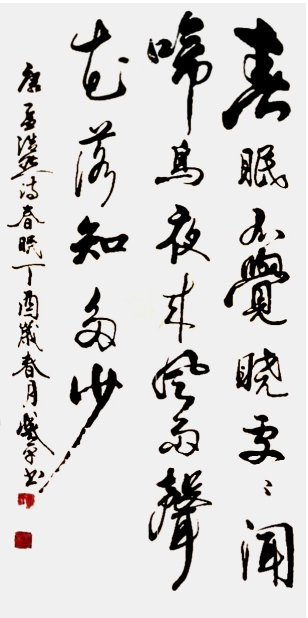 春眠不覺晓處〻聞
啼鳥夜来風雨聲
花落知多少
唐孟浩然诗春眠丁酉歲春月